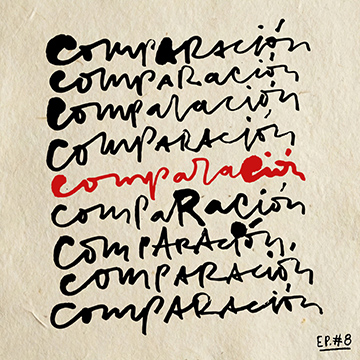 COMPARACIÓN
COMPARACIÓN
comparación
COMPARACIÓN
comparación
compaRación
COMPARACIÓN.
COMPARACIÓN
COMPARACIÓN
EP.#8